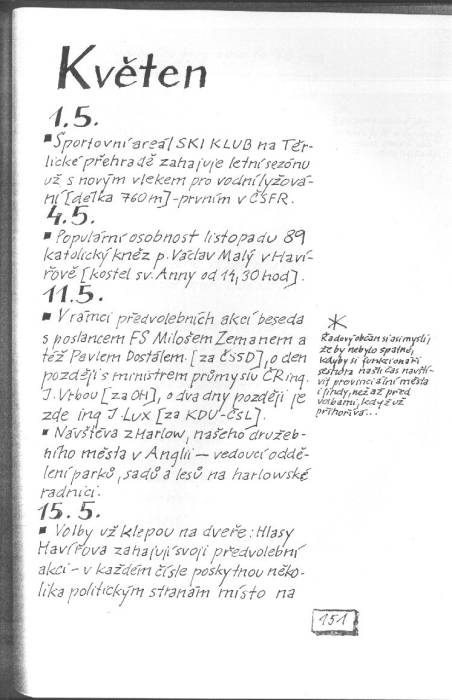 Květen
1.5.
▪ Sportovní areál SKI KLUB na Těr-
lické přehradě zahajuje letní sezónu
už s novým vlekem pro vodní lyžová-
ní [délka 760 m] - prvním v ČSFR.
4.5.
▪ Populární osobnost listopadu 89
katolický kněz p. Václav Malý v Haví-
řově [kostel sv. Anny od 14,30 hod].
11.5.
▪ V rámci předvolebních akcí beseda
s poslancem FS Milošem Zemanem a
též Pavlem Dostálem. [za ČSSD], o den
později s ministrem průmyslu ČR ing.
J. Vrbou [za OH], o dva dny později je
zde ing J. Lux [za KDU-ČSL].
▪ Návštěva z Harlow, našeho družeb-
ního města v Anglii — vedoucí oddě-
lení parků, sadů a lesů na harlowské
radnici.
15.5.
▪ Volby už klepou na dveře: Hlasy
Havířova zahajují svoji předvolební
akci - v každém čísle poskytnou něko-
lika politickým stranám místo na
*
Řadový občan si asi myslí,
že by nebylo špatné,
kdyby si funkcionáři
našli čas navští-
vit provinciální města
i jindy, než až před
volbami, když už
přihořívá...
151